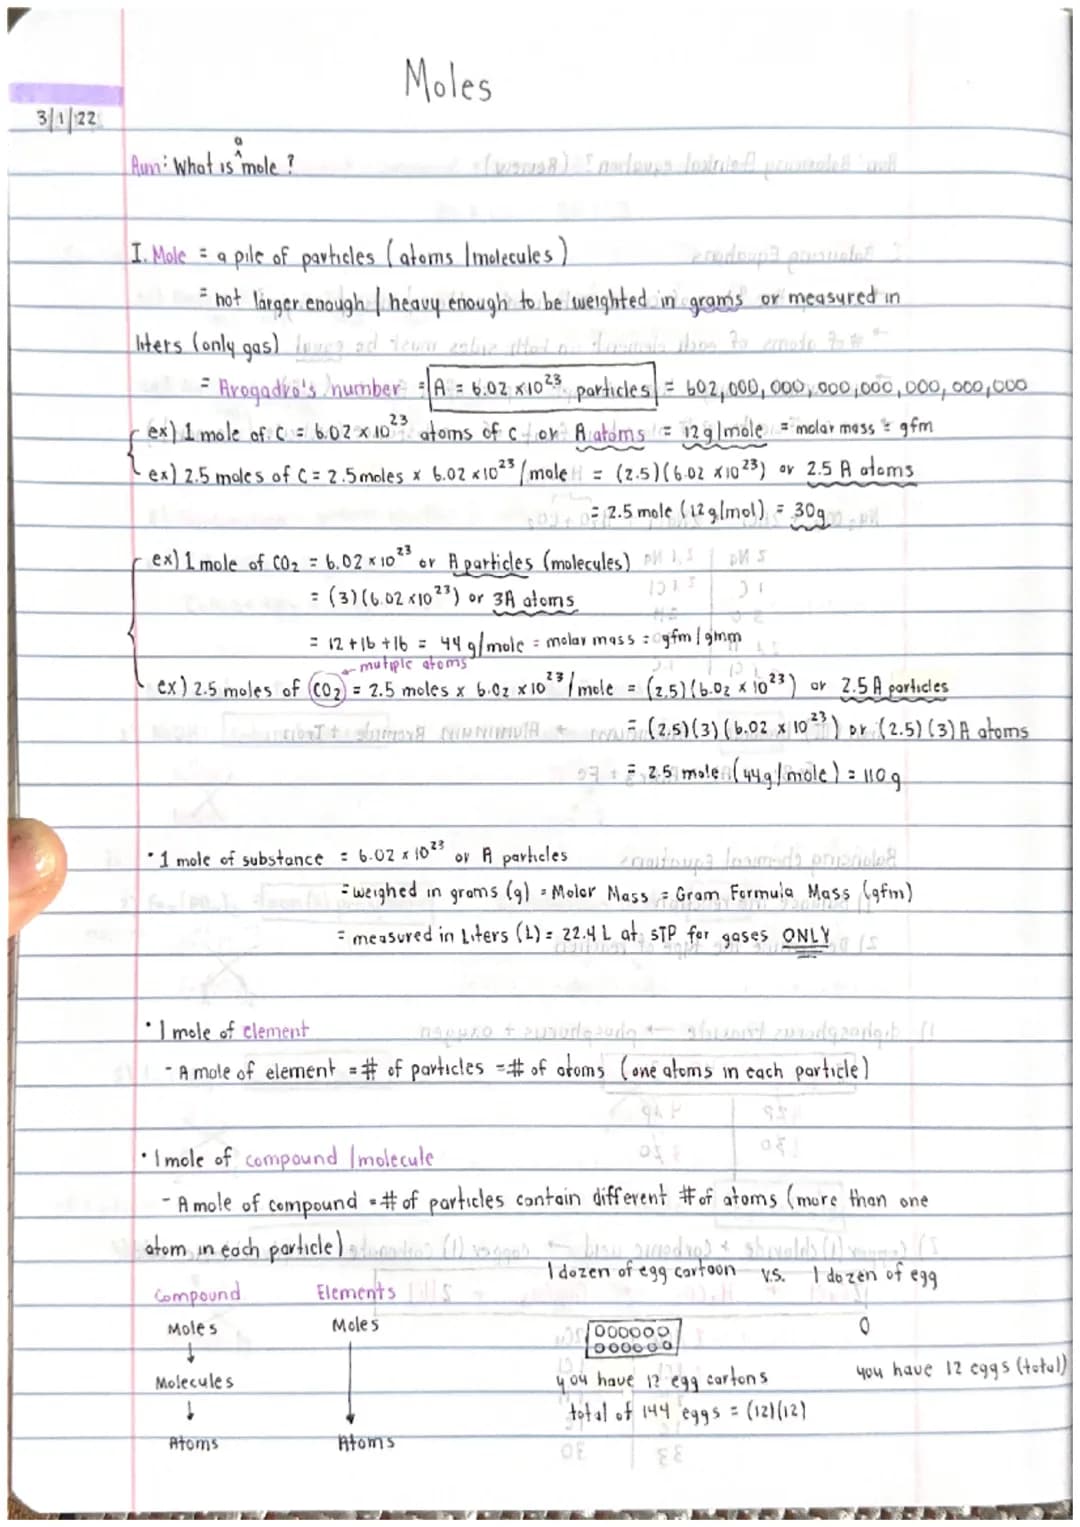 Moles
3/1/22
Aim: What is a mole?
I. Mole = a pile of particles (atoms/molecules)
= not larger enough / heavy enough to be weighted in grams or measured in
liters (only gas)
= Avogadro's number = A = 6.02 x 10²³ particles = 602,000,000,000,000,000,000,000
ex) 1 mole of C = 6.02 x 10²³ atoms of C or A atoms = 12g/mole = molar mass = gfm
ex) 2.5 moles of C = 2.5 moles x 6.02 x 10²³/mole = (2.5)(6.02 x 10²³) or 2.5 A atoms
= 2.5 mole (12 g/mol) = 30g
ex) 1 mole of CO₂ = 6.02 x 10²³ or A particles (molecules)
= (3)(6.02 x 10²³) or 3A atoms
= 12 + 16 + 16 = 44 g/mole = molar mass = gfm/gmm
mutiple atoms
ex) 2.5 moles of CO₂ = 2.5 moles x 6.02 x 10²³/mole = (2.5)(6.02 x 10²³) or 2.5 A particles
= (2.5)(3)(6.02 x 10²³) or (2.5)(3) A atoms
= 2.5 mole (44g/mole) = 110 g
• 1 mole of substance = 6.02 x 10²³ or A particles
= weighed in grams (g) = Molar Mass = Gram Formula Mass (gfm)
= measured in Liters (L) = 22.4 L at STP for gases ONLY
• 1 mole of element
- A mole of element = # of particles = # of atoms (one atoms in each particle)
• 1 mole of compound / molecule
- A mole of compound = # of particles contain different # of atoms (more than one
atom in each particle)
1 dozen of egg cartoon v.s. 1 dozen of egg
Compound Elements
Moles Moles
↓ ↓
Molecules
you have 12 egg cartons you have 12 eggs (total)
total of 144 eggs = (12)(12)
↓
Atoms Atoms